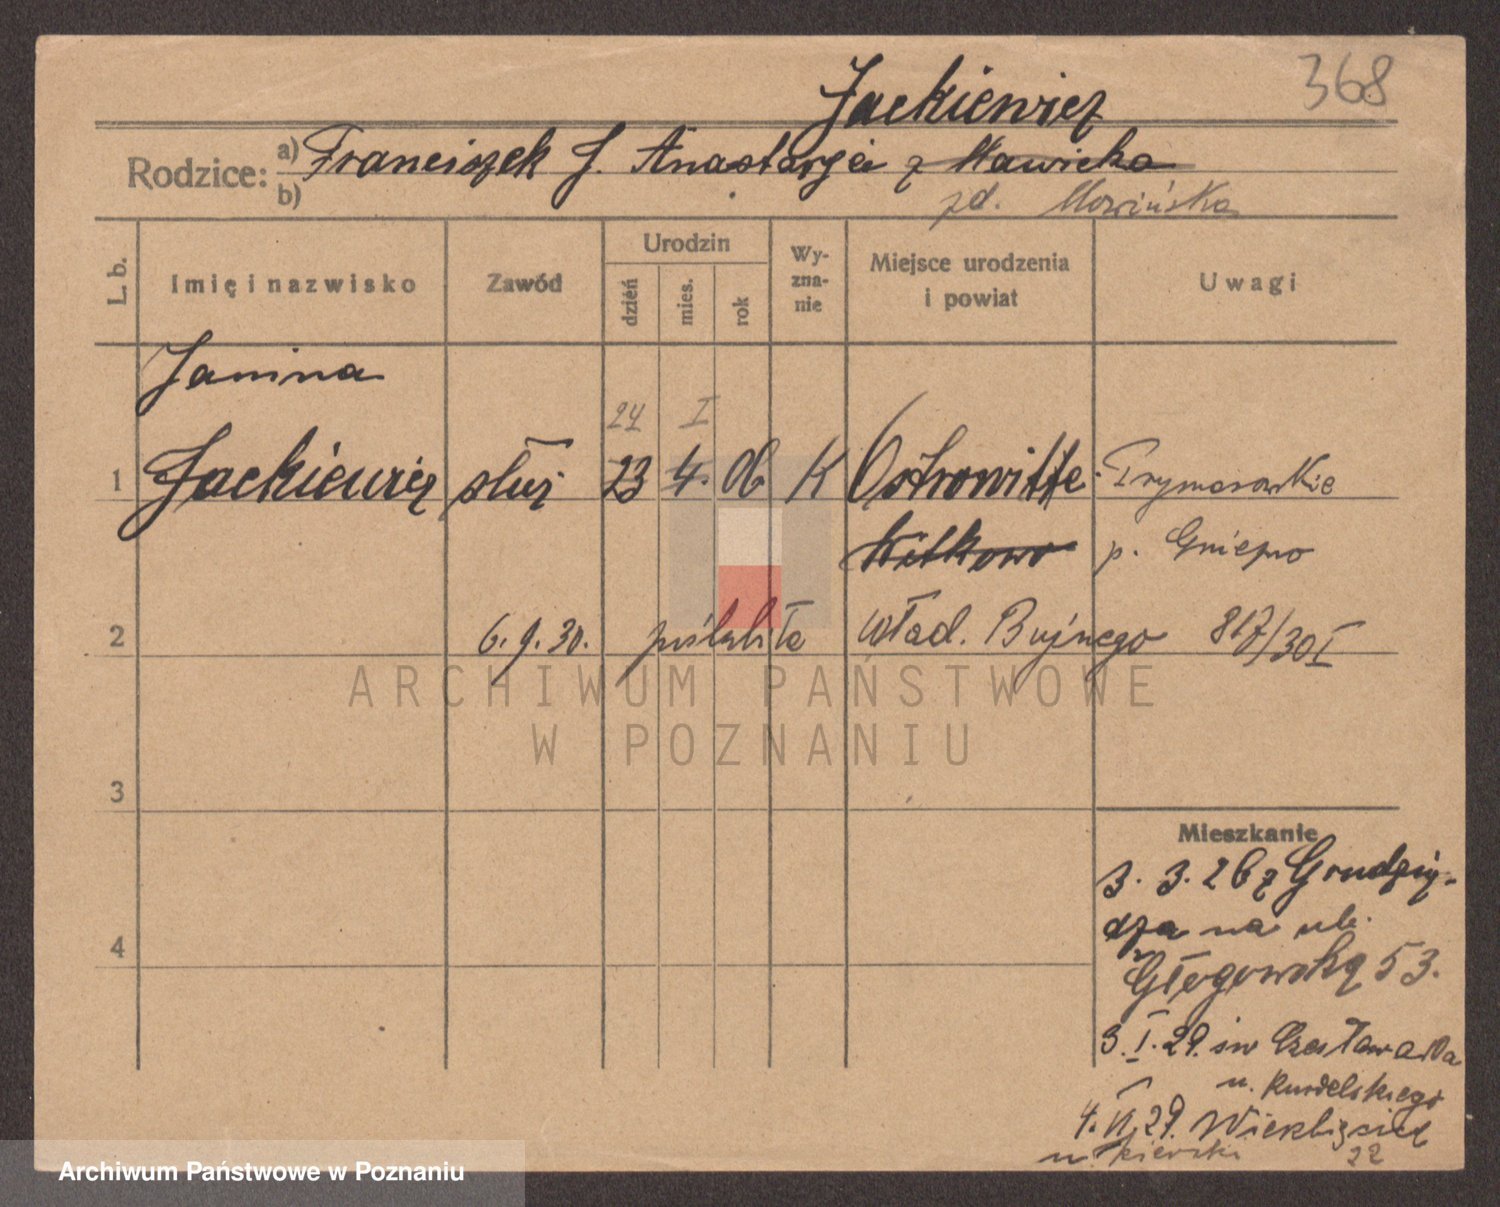 368
Jackiewicz
Rodzice: a) Franciszek J. Anastazja z Nawicka
b) zd. Nowińska
L. b. Imię i nazwisko Zawód Urodzin dzień mies. rok Wyznanie Miejsce urodzenia i powiat Uwagi
Janina
24 I
1 Jackiewicz służ 23 4. 06 K Ostrowitte Prymasowskie
Witkowo p. Gniezno
2 6.9.30. poślubiła Wład. Bujnego 817/30 I
ARCHIWUM PAŃSTWOWE
W POZNANIU
3
Mieszkanie
3. 3. 26 z Grudzią-
dza na ul.
4
Głogowską 53.
3. I. 29. św Czesława
u.
4. VI. 29. Wierzbięcice
u. 22
Archiwum Państwowe w Poznaniu